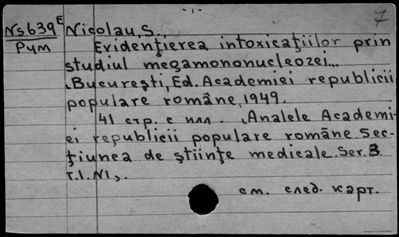 7
Ns639E Nicolau, S.
Рум Evidenţierea intoxicaţiilor prin
studiul megamononucleozei...
Bucureşti, Ed. Academiei republicii
populare române, 1949.
41 стр. с илл. (Analele Academi-
ei republicii populare române. Sec-
ţiunea de ştiinţe medicale. Ser. B.
T.I. N1).
см. след. карт.